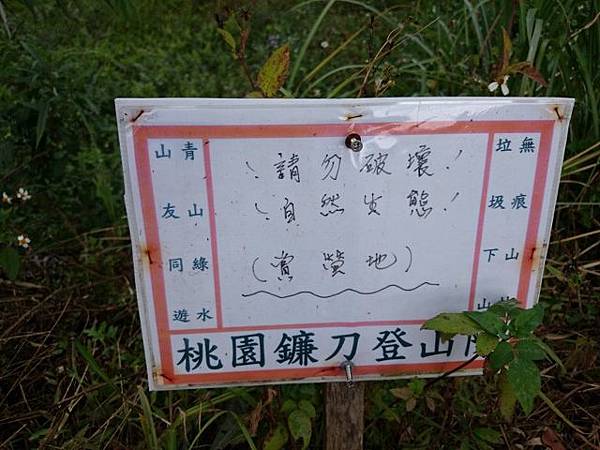 青山綠水
山友同遊
！請勿破壞！
！自然生態！
（賞螢地）
無痕山
垃圾下山
桃園鐮刀登山